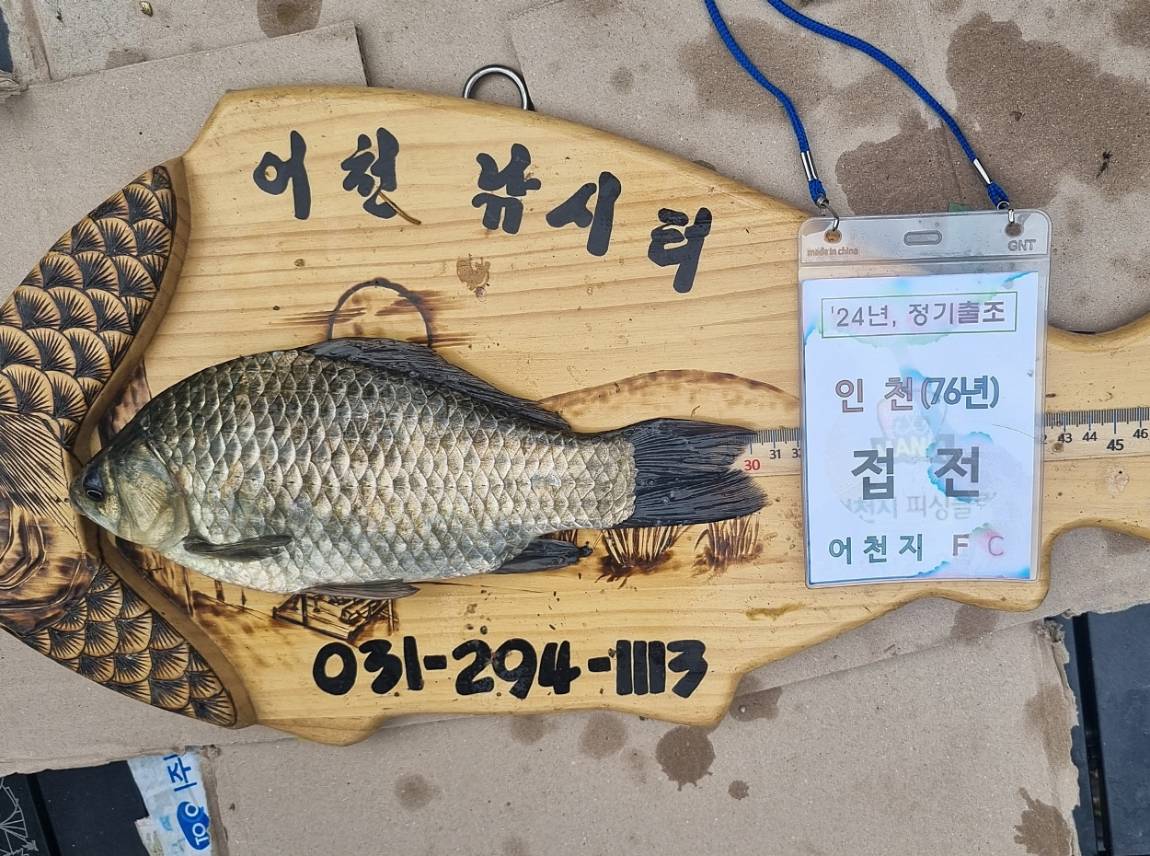 어천 낚시터
made in china
GNT
'24년, 정기출조
인 천(76년)
접 전
피싱클럽
어천지 F C
30 31 43 44 45 46
031-294-1113